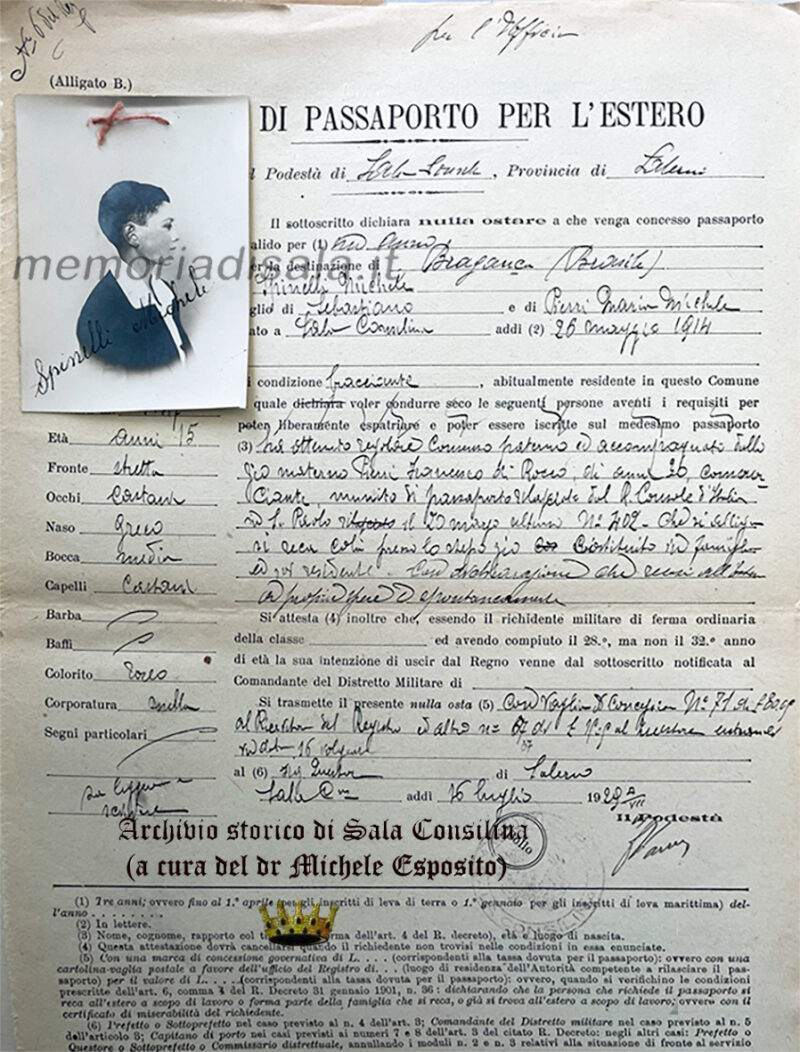 per l'Ufficio
(Alligato B.)
DI PASSAPORTO PER L'ESTERO
l Podestà di Sala Consil, Provincia di Salerno
Il sottoscritto dichiara nulla ostare a che venga concesso passaporto
alido per (1) un anno
per la destinazione di Bragança (Brasile)
Spinelli Michele
glio di Sebastiano e di Pierri Maria Michela
ato a Sala Consilina addì (2) 26 maggio 1914
memoriadisala.it
Spinelli Michele
i condizione bracciante, abitualmente residente in questo Comune
quale dichiara voler condurre seco le seguenti persone aventi i requisiti per
poter liberamente espatriare e poter essere iscritte sul medesimo passaporto
(3) ha ottenuto regolare Consenso paterno ed accompagnato dallo
zio materno Pierri Francesco di Rocco, di anni 20, commer
ciante, munito di passaporto rilasciato dal R. Console d'Italia
S. Paolo il 20 marzo N° 402 - che si allega
si reca colà presso lo stesso zio costituito in famiglia
ivi residente. Con dichiarazione che
a proprie spese e spontaneamente
Età anni 15
Fronte stretta
Occhi Castani
Naso Greco
Bocca media
Capelli Castani
Barba
Baffi
Colorito roseo
Corporatura snella
Segni particolari
sa leggere e
scrivere
Si attesta (4) inoltre che, essendo il richidente militare di ferma ordinaria
della classe ed avendo compiuto il 28.º, ma non il 32.º anno
di età la sua intenzione di uscir dal Regno venne dal sottoscritto notificata al
Comandante del Distretto Militare di
Si trasmette il presente nulla osta (5) Con Vaglia di Concessione N° 71 di £
al Ricevitore del Registro ed altro n° 67 di £
in data 16 volgente
al (6) Sig Questore di Salerno
Sala Cna addì 16 luglio 1929 VII
Il Podestà
Bollo
Archivio storico di Sala Consilina
(a cura del dr Michele Esposito)
(1) Tre anni; ovvero fino al 1.º aprile (per gli inscritti di leva di terra o 1.º gennaio per gli inscritti di leva marittima) del-
l'anno . . . . . . . .
(2) In lettere.
(3) Nome, cognome, rapporto col forma dell'art. 4 del R. decreto), età e luogo di nascita.
(4) Questa attestazione dovrà cancellarsi quando il richiedente non trovisi nelle condizioni in essa enunciate.
(5) Con una marca di concessione governativa di L. . . . (corrispondenti alla tassa dovuta per il passaporto): ovvero con
cartolina-vaglia postale a favore dell'ufficio del Registro di. . . (luogo di residenza dell'Autorità competente a rilasciare il pas-
saporto) per il valore di L. . . . (corrispondenti alla tassa dovuta per il passaporto): ovvero, quando si verifichino le condizioni
prescritte dell'art. 6, comma 4 del R. Decreto 31 gennaio 1901, n. 36: dichiarando che la persona che richiede il passaporto si
reca all'estero a scopo di lavoro o forma parte della famiglia che si reca, o già si trova all'estero a scopo di lavoro; ovvero con il
certificato di miserabilità del richiedente.
(6) Prefetto o Sottoprefetto nel caso previsto al n. 4 dell'art. 3; Comandante del Distretto militare nel caso previsto al n. 5
dell'articolo 3; Capitano di porto nei casi previsti ai numeri 7 e 8 dell'art. 3 del citato R. Decreto: negli altri casi: Prefetto o
Questore o Sottoprefetto o Commissario distrettuale, annullando i moduli n. 2 e n. 3 relativi alla situazione di fronte al servizio